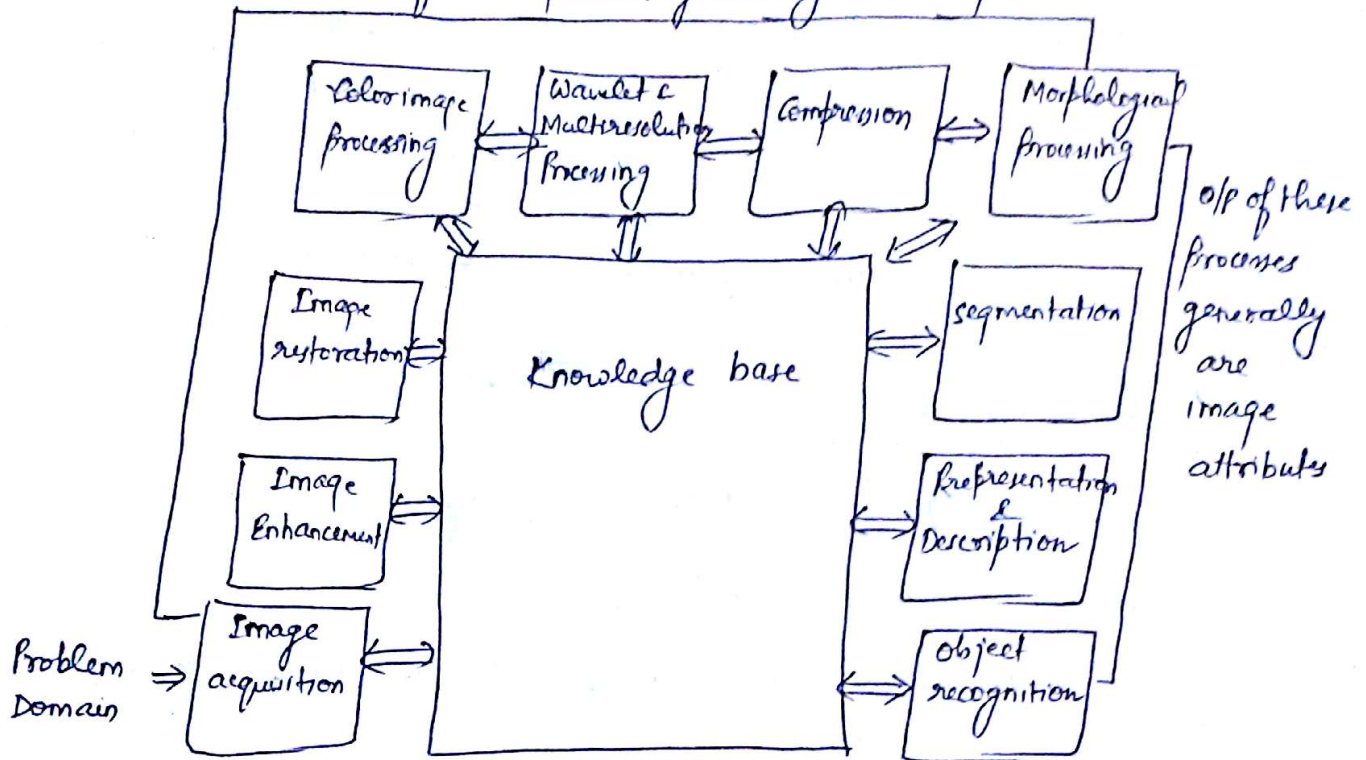 Colorimage
Processing
Wavelet &
Multiresolution
Processing
Compression
Morphological
Processing
O/P of these
Processes
generally
are
image
attributes
Image
restoration
Knowledge base
segmentation
Image
Enhancement
Representation
&
Description
Problem
Domain
Image
acquisition
object
recognition